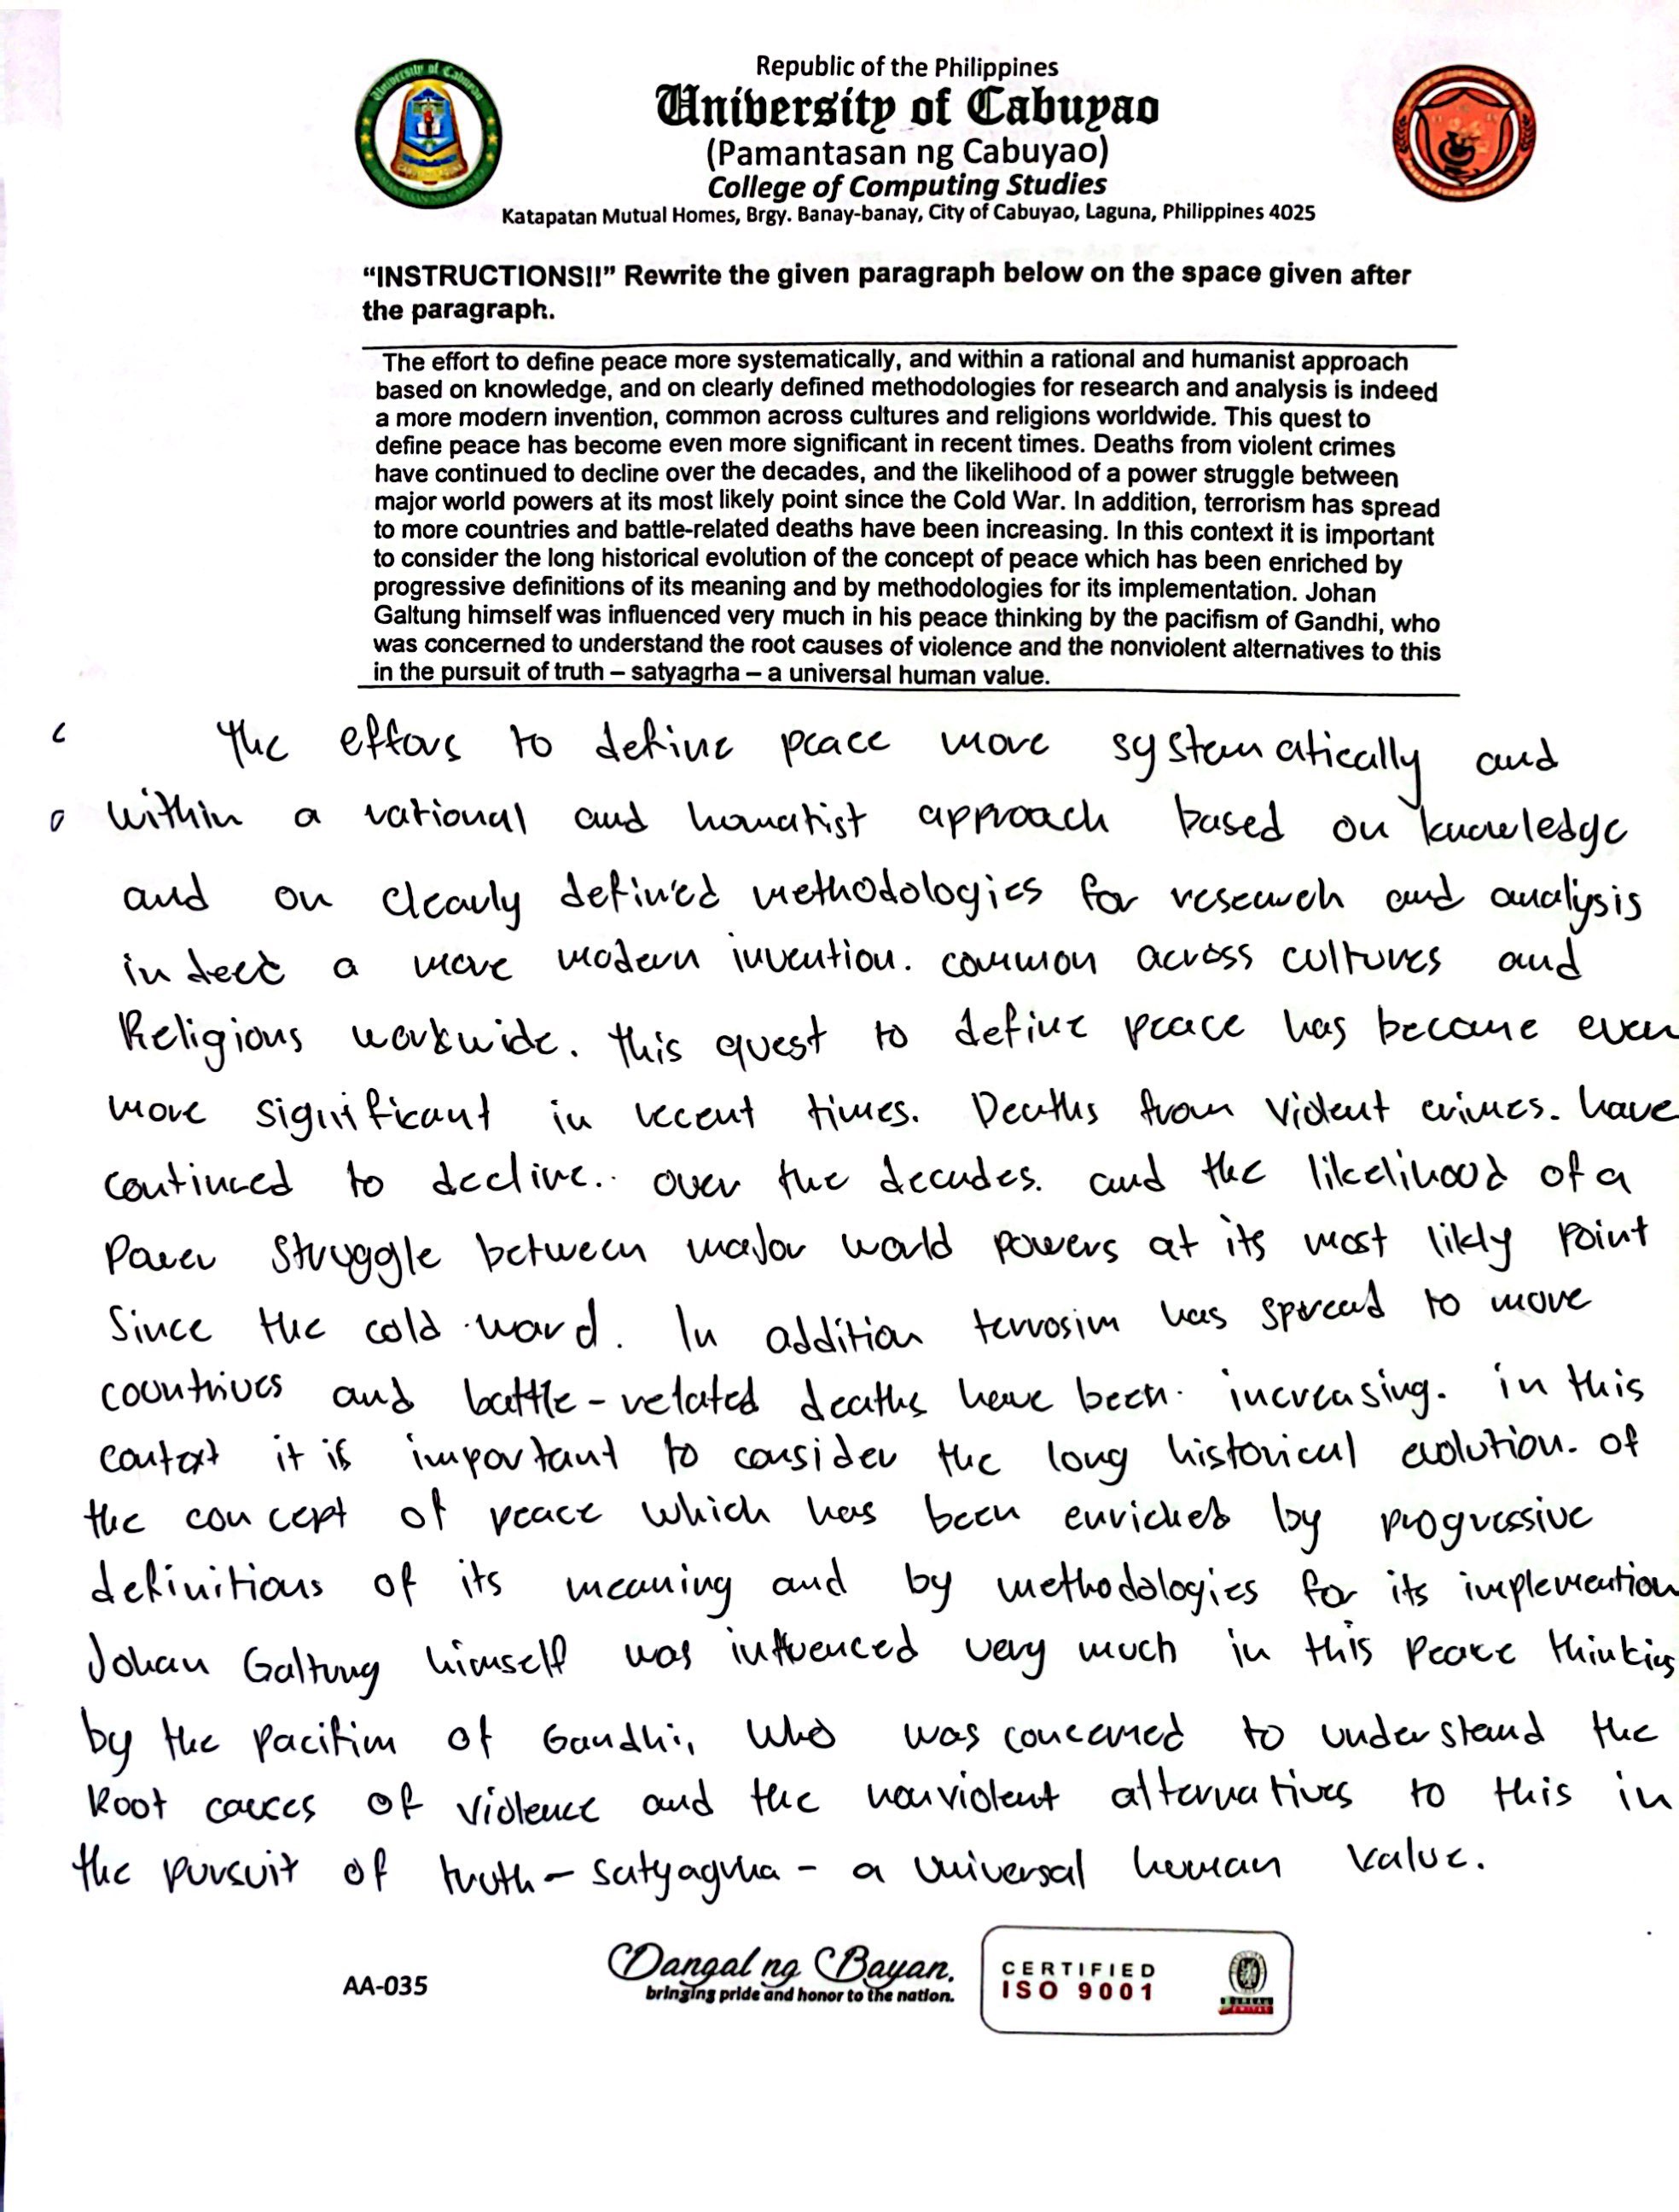 Republic of the Philippines
University of Cabuyao
(Pamantasan ng Cabuyao)
College of Computing Studies
Katapatan Mutual Homes, Brgy. Banay-banay, City of Cabuyao, Laguna, Philippines 4025
“INSTRUCTIONS!!” Rewrite the given paragraph below on the space given after
the paragraph.
The effort to define peace more systematically, and within a rational and humanist approach
based on knowledge, and on clearly defined methodologies for research and analysis is indeed
a more modern invention, common across cultures and religions worldwide. This quest to
define peace has become even more significant in recent times. Deaths from violent crimes
have continued to decline over the decades, and the likelihood of a power struggle between
major world powers at its most likely point since the Cold War. In addition, terrorism has spread
to more countries and battle-related deaths have been increasing. In this context it is important
to consider the long historical evolution of the concept of peace which has been enriched by
progressive definitions of its meaning and by methodologies for its implementation. Johan
Galtung himself was influenced very much in his peace thinking by the pacifism of Gandhi, who
was concerned to understand the root causes of violence and the nonviolent alternatives to this
in the pursuit of truth – satyagrha – a universal human value.
The effors to define peace more systematically and
within a rational and homatist approach based on knowledge
and on clearly defined methodologies for research and analysis
indeed a more modern invention. common across cultures and
Religious workwide. this quest to define peace has become even
more significant in recent times. Deaths from violent crimes. have
continued to decline.. over the decades. and the likelihood of a
Power struggle between major world powers at its most likly point
Since the cold ward. In addition terrosim has spread to more
countrives and battle-related deaths have been increasing. in this
context it is important to consider the long historical evolution. of
the concept of peace which has been enriched by progressive
definitions of its meaning and by methodologies for its implemention
Johan Galtung himself was influenced very much in this peace thinking
by the pacifim of Gandhi, who was concerned to understand the
Root causes of violence and the nonviolent alternatives to this in
the pursuit of truth - satyagrha - a universal human value.
AA-035
Dangal ng Bayan.
bringing pride and honor to the nation.
CERTIFIED
ISO 9001